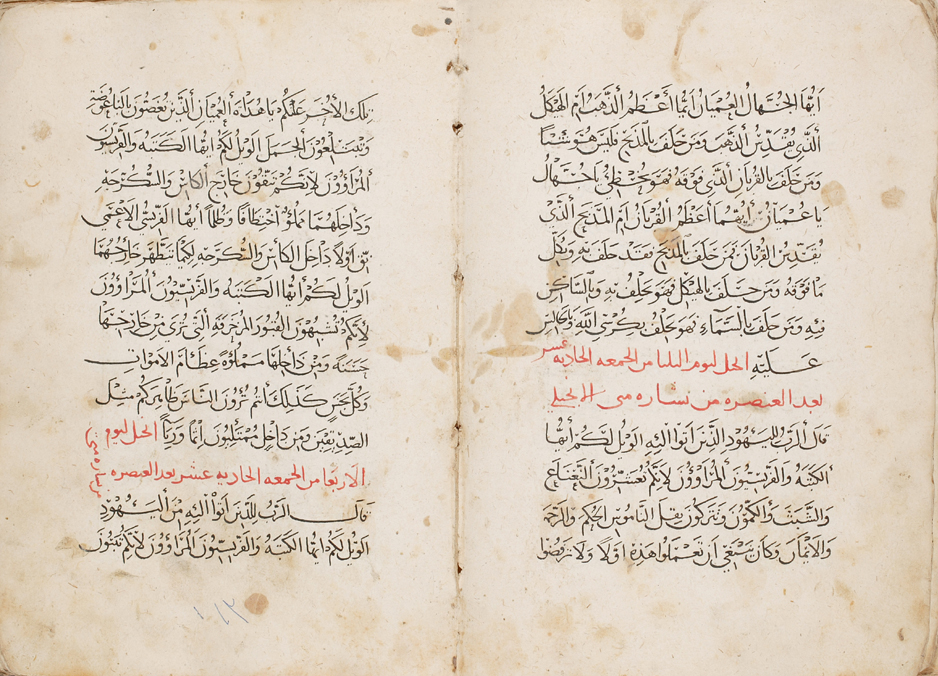 ايّها الجهّال العميان ايّما أعظم الذّهب ام الهيكل
الّذي يقدّس الذّهب ومن حلف بالمذبح فليس هو شيئًا
ومن حلف بالقربان الّذي فوقه فهو يخطئ يا جهّال
يا عميان أيّهما أعظم القربان ام المذبح الّذي
يقدّس القربان فمن حلف بالمذبح فقد حلف به وبكل
ما فوقه ومن حلف بالهيكل فهو يحلف به وبالساكن
فيه ومن حلف بالسّماء فهو يحلف بكرسي الله وبالجالس
عليه الحل ليوم الثلثا من الجمعه الحاديه عشر
بعد العنصره من بشاره متى الانجيلي
قال الربّ لليهود الذين اتوا اليه الويل لكم أيها
الكتبه والفريسيون المراؤون لانكم تعشرون النعناع
والشبث والكمّون وتتركون ثقل الناموس الحكم والرحمة
والايمان وكان ينبغي ان تعملوا هذه اوّلاً ولا ترفضوا
تلك الأخر عنكم يا هداة العميان الّذين يغصّون بالناموضة
ويبتلعون الجمل الويل لكم ايها الكتبه والفريسيون
المراؤون لانكم تنقون خارج الكاس والسّكرجه
وداخلهما مملؤ اختطافًا وظلمًا أيها الفريسي الاعمى
نقّ اوّلاً داخل الكاس والسّكرجه لكيما يتطهّر خارجهما
الويل لكم أيها الكتبه والفريسيون المراؤون
لانكم تشبهون القبور المزخرفه التي ترى من خارجها
حسنه ومن داخلها مملوّة عظام الاموات
وكل نجس كذلك انتم ترون الناس ظاهركم مثل
الصدّيقين ومن داخل ممتليون اثمًا ورياً الحل ليوم
الاربعا من الجمعه الحاديه عشر بعد العنصره
بشاره متى
قال الربّ للذين اتوا اليه من اليهود
الويل لكم ايها الكتبه والفريسيون المراؤون لانكم تبنون
١١٢